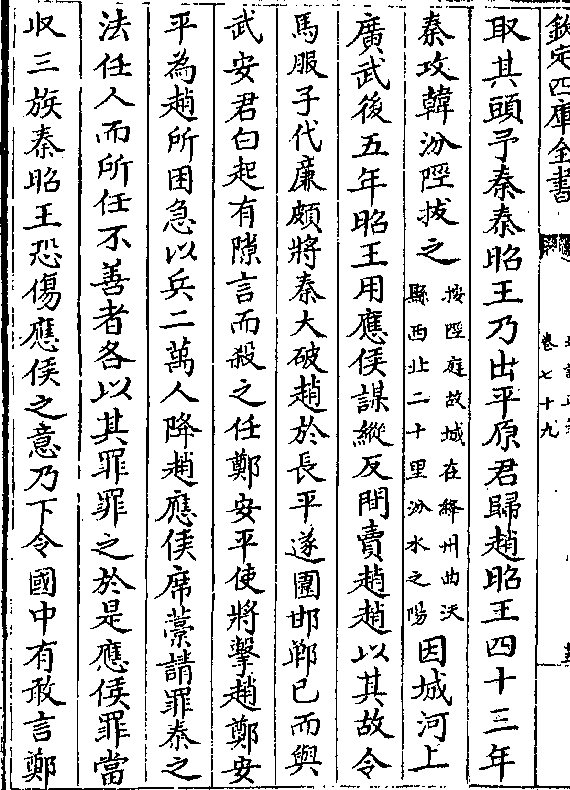 欽定四庫全書
卷七十九
取其頭予秦秦昭王乃出平原君歸趙昭王四十三年
秦攻韓汾陘拔之
按陘庭故城在絳州曲沃
縣西北二十里汾水之陽
因城河上
廣武後五年昭王用應侯謀縱反間賣趙趙以其故令
馬服子代廉頗將秦大破趙於長平遂圍邯鄲已而與
武安君白起有隙言而殺之任鄭安平使將擊趙鄭安
平為趙所困急以兵二萬人降趙應侯席藁請罪秦之
法任人而所任不善者各以其罪罪之於是應侯罪當
收三族秦昭王恐傷應侯之意乃下令國中有敢言鄭